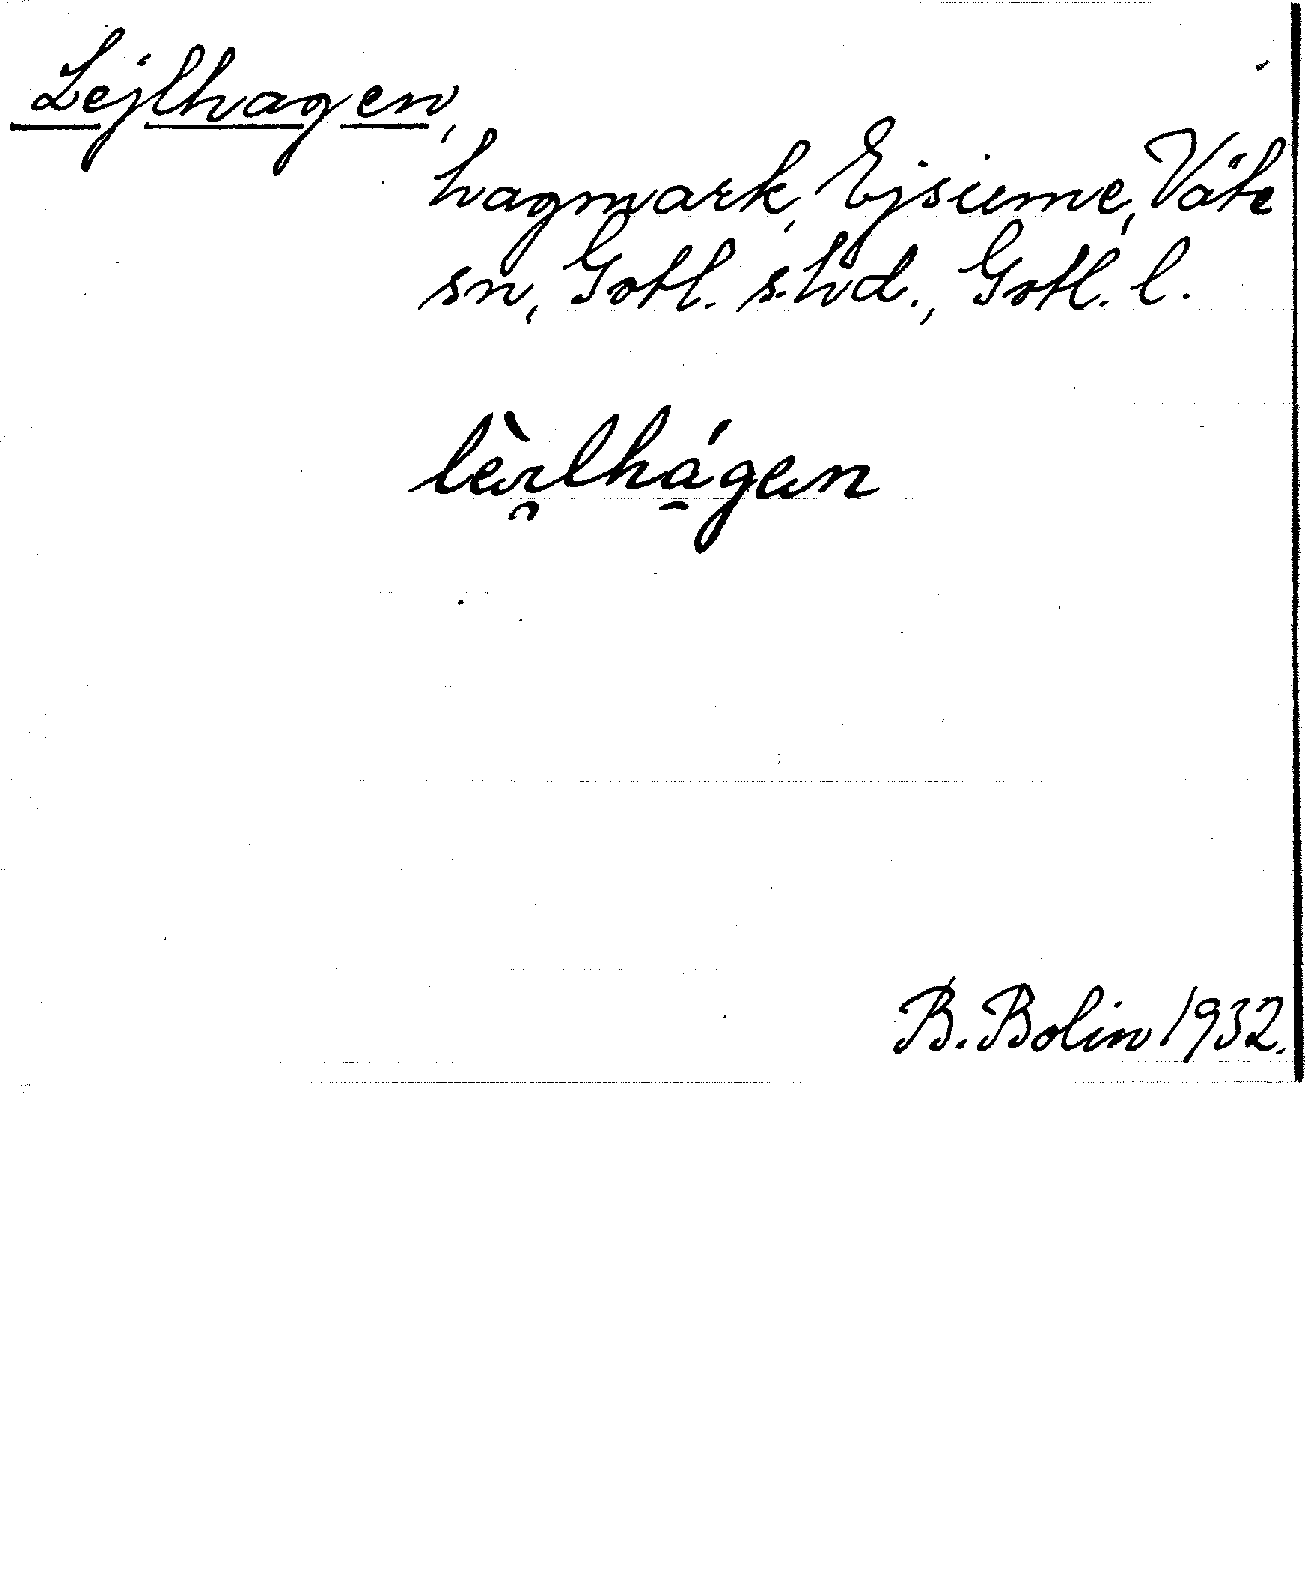 Lejlhagen,
hagmark, Ejsieme, Väte
sn, Gotl. s. hd., Gotl. l.
lèɪ̯lhá̱gɐn
B. Bolin 1932.